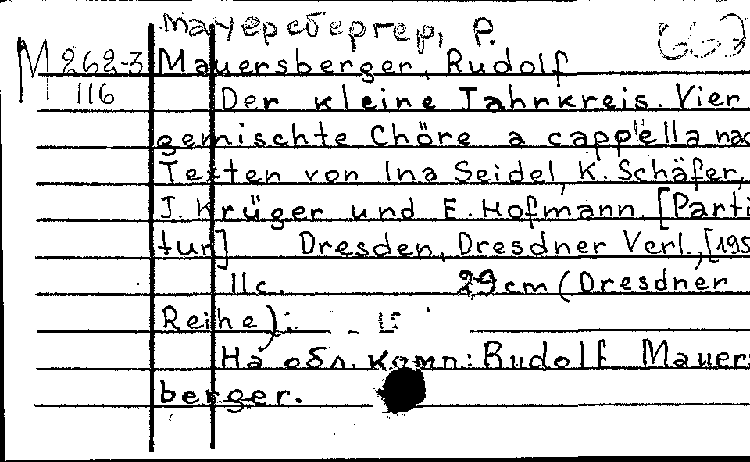 Мауерсбергер, Р.
663
M 262-3 Mauersberger, Rudolf
116 Der kleine Jahrkreis. Vier
gemischte Chöre a cappella nac
Texten von Ina Seidel, K. Schäfer,
J. Krüger und E. Hofmann. [Parti
tur] Dresden, Dresdner Verl., [195
11c. 29cm (Dresdner
Reihe).
На обл. комп.: Rudolf Mauers
berger.